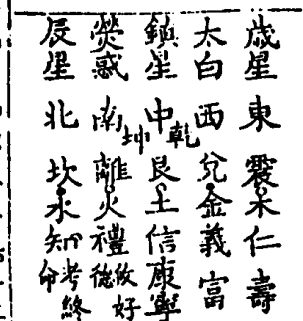 歲星東震木仁壽
太白西兌金義富
鎮星中乾坤艮土信康寧
熒惑南離火禮攸好德
辰星北坎水知考終命